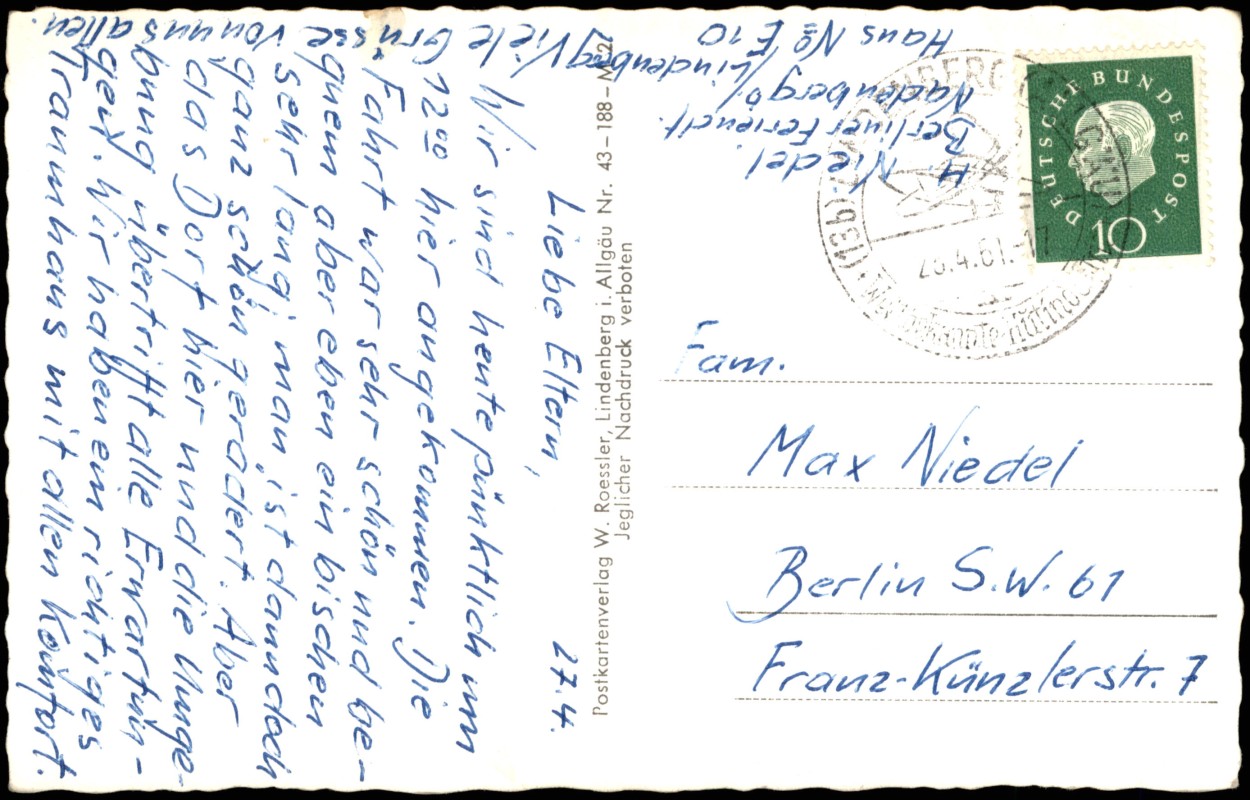 27.4.
Liebe Eltern,
Wir sind heute pünktlich um
12⁰⁰ hier angekommen. Die
Fahrt war sehr schön und be-
quem aber eben ein bischen
sehr lang, man ist dann doch
ganz schön gerädert. Aber
das Dorf hier und die Umge-
bung übertrifft alle Erwartun-
gen. Wir haben ein richtiges
Traumhaus mit allen Komfort.
Viele Grüsse von uns allen
H. Niedel
Berliner Feriendf.
Nadenberg b/
Lindenberg
Haus № E 10
Postkartenverlag W. Roessler, Lindenberg i. Allgäu Nr. 43-188-M2
Jeglicher Nachdruck verboten
DEUTSCHE BUNDESPOST
10
(13b) LINDENBERG
.4.61.-17
Fam.
Max Niedel
Berlin S.W. 61
Franz-Künzlerstr. 7